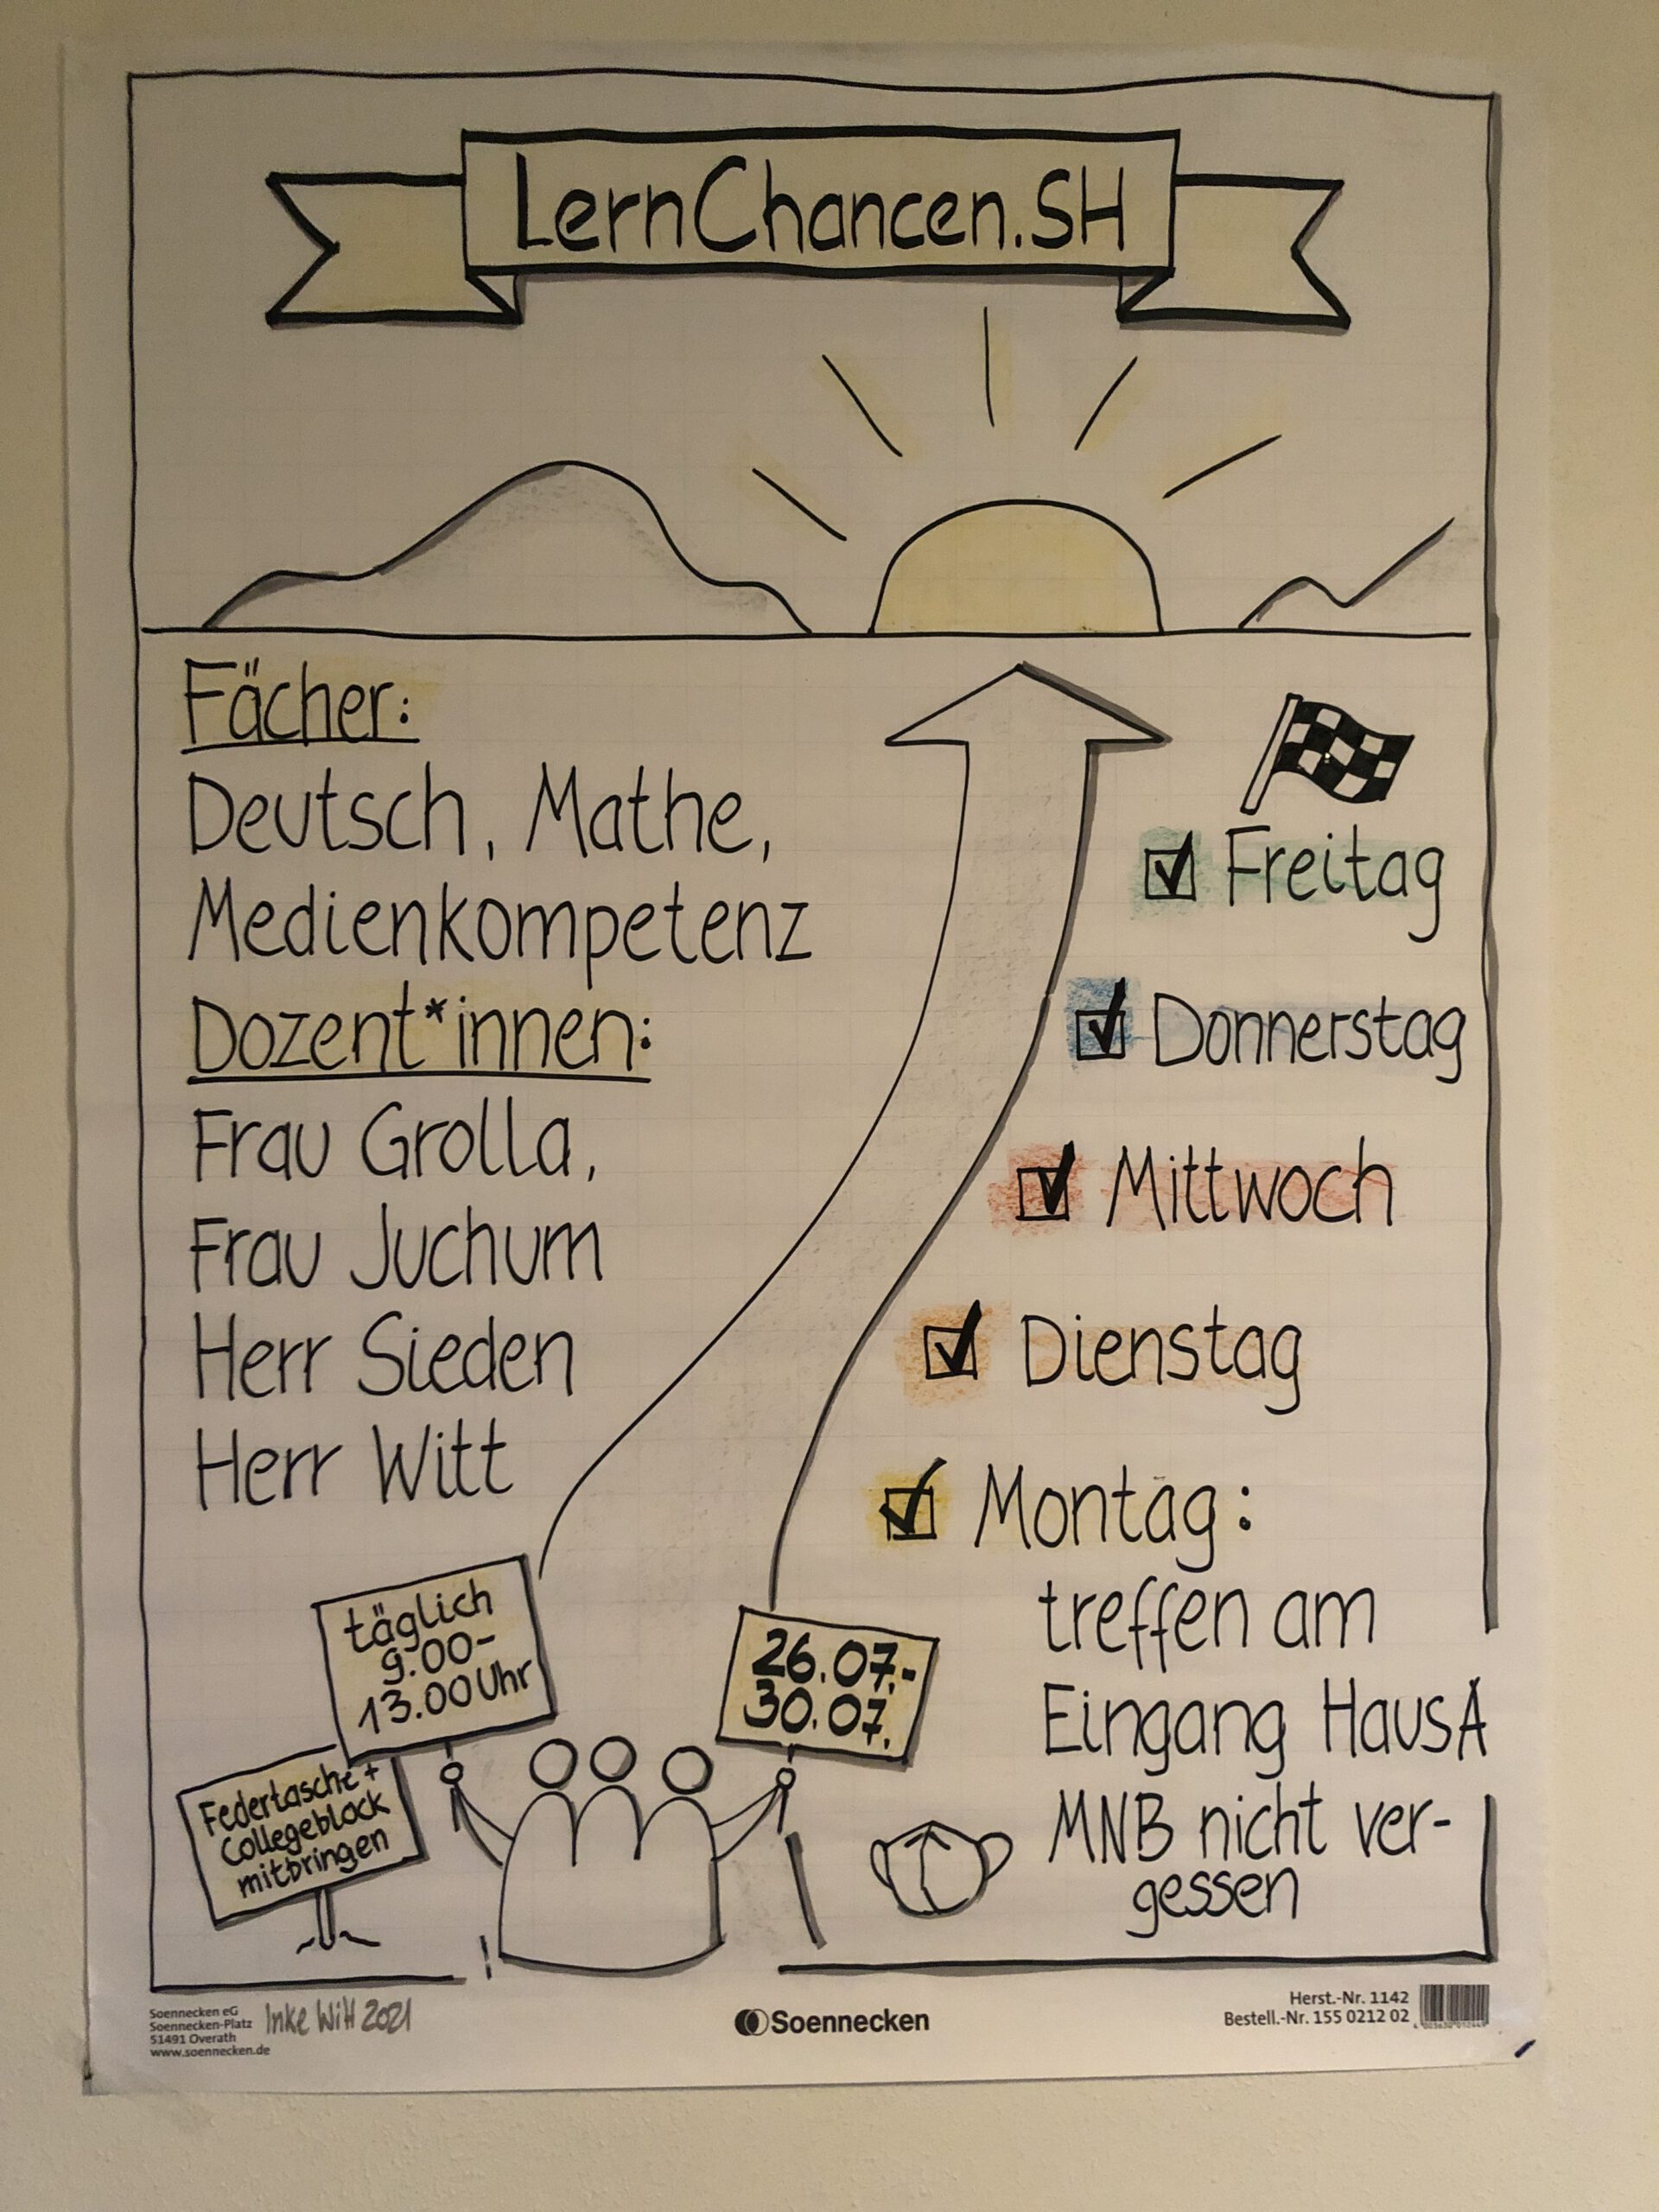 LernChancen.SH
Fächer:
Deutsch, Mathe,
Medienkompetenz
Dozent*innen:
Frau Grolla,
Frau Juchum
Herr Sieden
Herr Witt
Freitag
Donnerstag
Mittwoch
Dienstag
Montag:
treffen am
Eingang Haus A
MNB nicht ver-
gessen
täglich
9.00-
13.00 Uhr
26.07.-
30.07.
Federtasche +
Collegeblock
mitbringen
!
Soennecken eG
Soennecken-Platz
51491 Overath
www.soennecken.de
Inke Witt 2021
Soennecken
Herst.-Nr. 1142
Bestell.-Nr. 155 0212 02